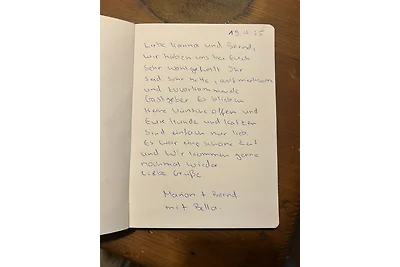 Liebe Hanna und Bernd,
wir haben uns bei Euch
sehr wohlgefühlt. Ihr
seid sehr nette, aufmerksame
und zuvorkommende
Gastgeber. Es blieben
keine Wünsche offen und
Eure Hunde und Katzen
sind einfach nur lieb.
Es war eine schöne Zeit
und wir kommen gerne
nochmal wieder.
Liebe Grüße
Manon + Bernd
mit Bella.